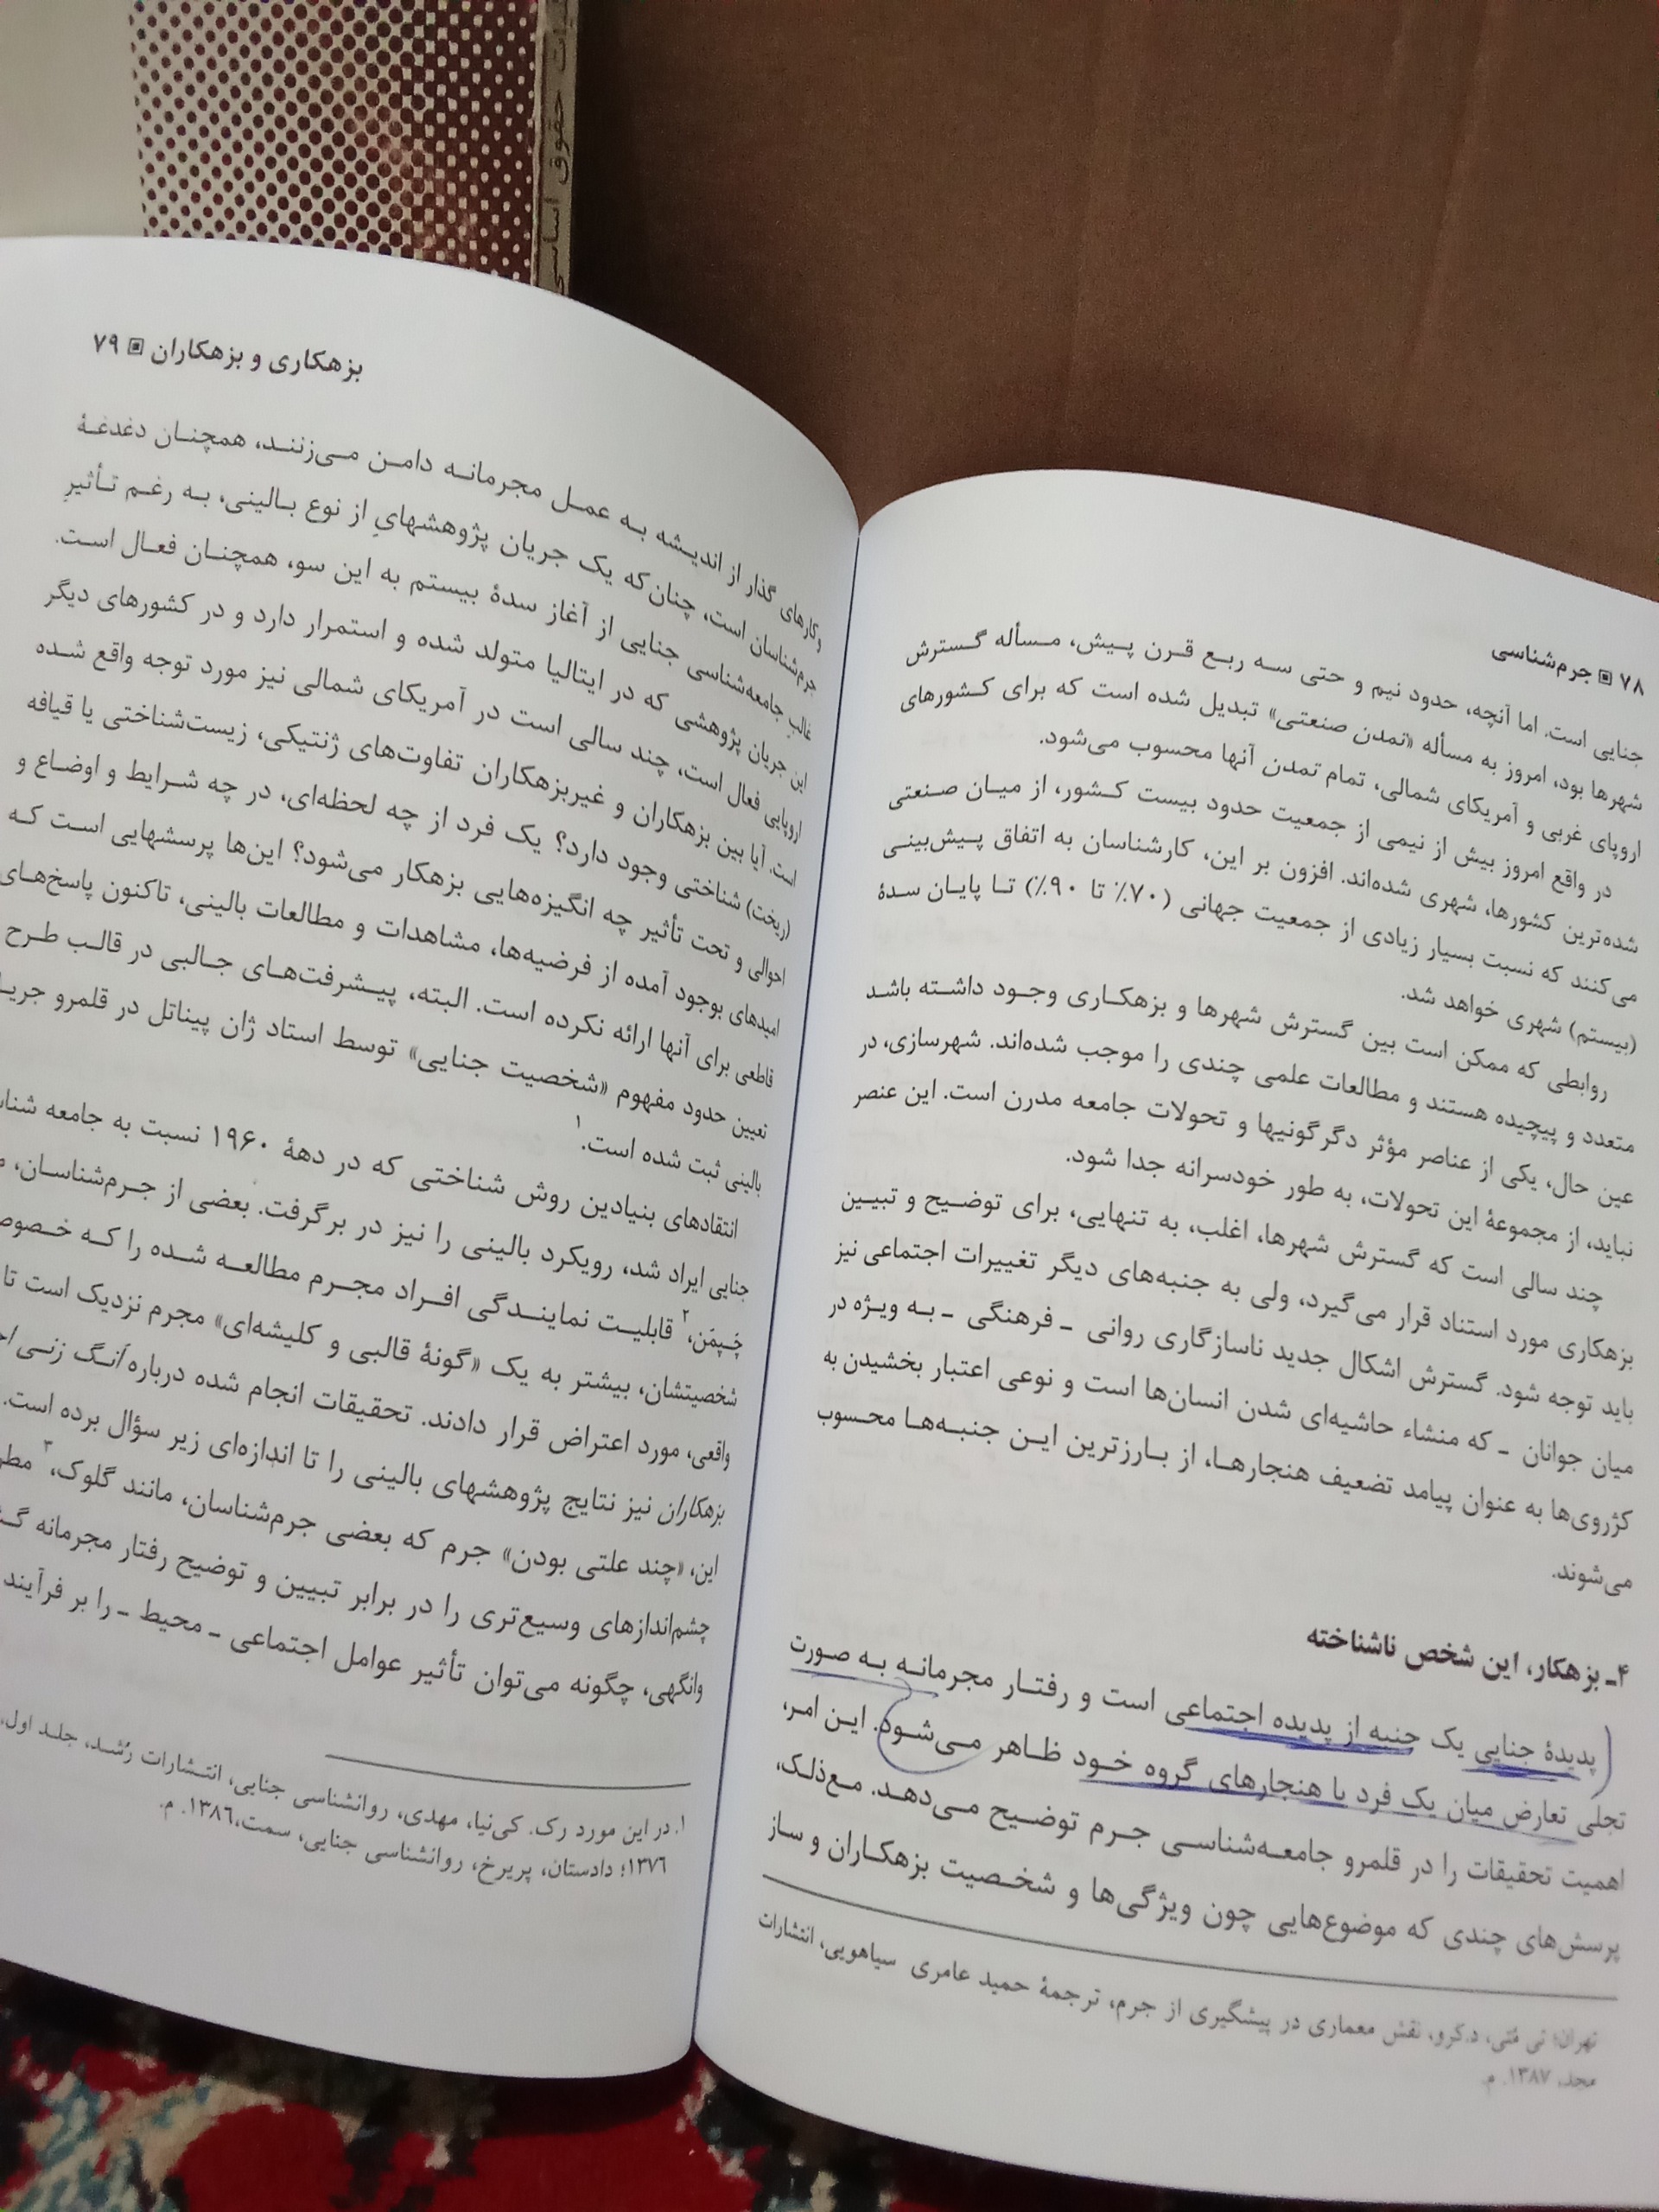 ۷۸ ▣ جرم‌شناسی
جنایی است. اما آنچه، حدود نیم و حتی سه ربع قرن پیش، مسأله گسترش
شهرها بود، امروز به مسأله «تمدن صنعتی» تبدیل شده است که برای کشورهای
اروپای غربی و آمریکای شمالی، تمام تمدن آنها محسوب می‌شود.
در واقع امروز بیش از نیمی از جمعیت حدود بیست کشور، از میان صنعتی
شده‌ترین کشورها، شهری شده‌اند. افزون بر این، کارشناسان به اتفاق پیش‌بینی
می‌کنند که نسبت بسیار زیادی از جمعیت جهانی (۷۰٪ تا ۹۰٪) تا پایان سدۀ
(بیستم) شهری خواهد شد.
روابطی که ممکن است بین گسترش شهرها و بزهکاری وجود داشته باشد
متعدد و پیچیده هستند و مطالعات علمی چندی را موجب شده‌اند. شهرسازی، در
عین حال، یکی از عناصر مؤثر دگرگونیها و تحولات جامعه مدرن است. این عنصر
نباید، از مجموعۀ این تحولات، به طور خودسرانه جدا شود.
چند سالی است که گسترش شهرها، اغلب، به تنهایی، برای توضیح و تبیین
بزهکاری مورد استناد قرار می‌گیرد، ولی به جنبه‌های دیگر تغییرات اجتماعی نیز
باید توجه شود. گسترش اشکال جدید ناسازگاری روانی ـ فرهنگی ـ به ویژه در
میان جوانان ـ که منشاء حاشیه‌ای شدن انسان‌ها است و نوعی اعتبار بخشیدن به
کژروی‌ها به عنوان پیامد تضعیف هنجارها، از بارزترین این جنبه‌ها محسوب
می‌شوند.
۴ـ بزهکار، این شخص ناشناخته
پدیدۀ جنایی یک جنبه از پدیده اجتماعی است و رفتار مجرمانه به صورت
تجلی تعارض میان یک فرد با هنجارهای گروه خود ظاهر می‌شود. این امر،
اهمیت تحقیقات را در قلمرو جامعه‌شناسی جرم توضیح می‌دهد. مع‌ذلک،
پرسش‌های چندی که موضوع‌هایی چون ویژگی‌ها و شخصیت بزهکاران و ساز
تهران؛ تی مَتی، د.کرو، نقش معماری در پیشگیری از جرم، ترجمۀ حمید عامری سیاهویی، انتشارات
مجد، ۱۳۸۷. م.
بزهکاری و بزهکاران ▣ ۷۹
وکارهای گذار از اندیشه به عمل مجرمانه دامن می‌زنند، همچنان دغدغۀ
جرم‌شناسان است، چنان‌که یک جریان پژوهشهایِ از نوع بالینی، به رغم تأثیرِ
غالبِ جامعه‌شناسی جنایی از آغاز سدۀ بیستم به این سو، همچنان فعال است.
این جریان پژوهشی که در ایتالیا متولد شده و استمرار دارد و در کشورهای دیگر
اروپایی فعال است، چند سالی است در آمریکای شمالی نیز مورد توجه واقع شده
است. آیا بین بزهکاران و غیربزهکاران تفاوت‌های ژنتیکی، زیست‌شناختی یا قیافه
(ریخت) شناختی وجود دارد؟ یک فرد از چه لحظه‌ای، در چه شرایط و اوضاع و
احوالی و تحت تأثیر چه انگیزه‌هایی بزهکار می‌شود؟ این‌ها پرسشهایی است که
امیدهای بوجود آمده از فرضیه‌ها، مشاهدات و مطالعات بالینی، تاکنون پاسخ‌های
قاطعی برای آنها ارائه نکرده است. البته، پیشرفت‌های جالبی در قالب طرح
تعیین حدود مفهوم «شخصیت جنایی» توسط استاد ژان پیناتل در قلمرو
بالینی ثبت شده است.۱
انتقادهای بنیادین روش شناختی که در دهۀ ۱۹۶۰ نسبت به جامعه
جنایی ایراد شد، رویکرد بالینی را نیز در برگرفت. بعضی از جرم‌شناسان،
چَپمَن،۲ قابلیت نمایندگی افراد مجرم مطالعه شده را که
شخصیتشان، بیشتر به یک «گونۀ قالبی و کلیشه‌ای» مجرم نزدیک است تا
واقعی، مورد اعتراض قرار دادند. تحقیقات انجام شده درباره اَنگ زنی
بزهکاران نیز نتایج پژوهشهای بالینی را تا اندازه‌ای زیر سؤال برده است.
این، «چند علتی بودن» جرم که بعضی جرم‌شناسان، مانند گلوک،۳
چشم‌اندازهای وسیع‌تری را در برابر تبیین و توضیح رفتار مجرمانه
وانگهی، چگونه می‌توان تأثیر عوامل اجتماعی ـ محیط ـ را بر فرآیند
۱. در این مورد رک. کی‌نیا، مهدی، روانشناسی جنایی، انتشارات رُشد، جلد اول،
۱۳۷۶؛ دادستان، پریرخ، روانشناسی جنایی، سمت، ۱۳۸۶. م.
حقوق اساسی